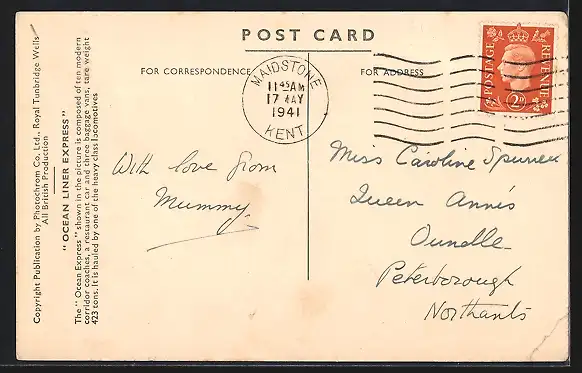 POST CARD
FOR CORRESPONDENCE
FOR ADDRESS
MAIDSTONE
11 45 AM
17 MAY
1941
KENT
POSTAGE
REVENUE
2D
With love from
Mummy
Miss Caroline
Queen Anne's
Oundle
Peterborough
Northants
Copyright Publication by Photochrom Co. Ltd., Royal Tunbridge Wells
All British Production
"OCEAN LINER EXPRESS"
The "Ocean Express" shown in the picture is composed of ten modern
corridor coaches, a restaurant car and three baggage vans, tare weight
423 tons. It is hauled by one of the heavy class locomotives